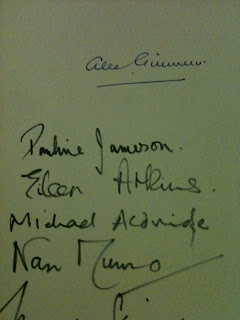 Alec Guinness
Pauline Jameson.
Eileen Atkins.
Michael Aldridge
Nan Munro